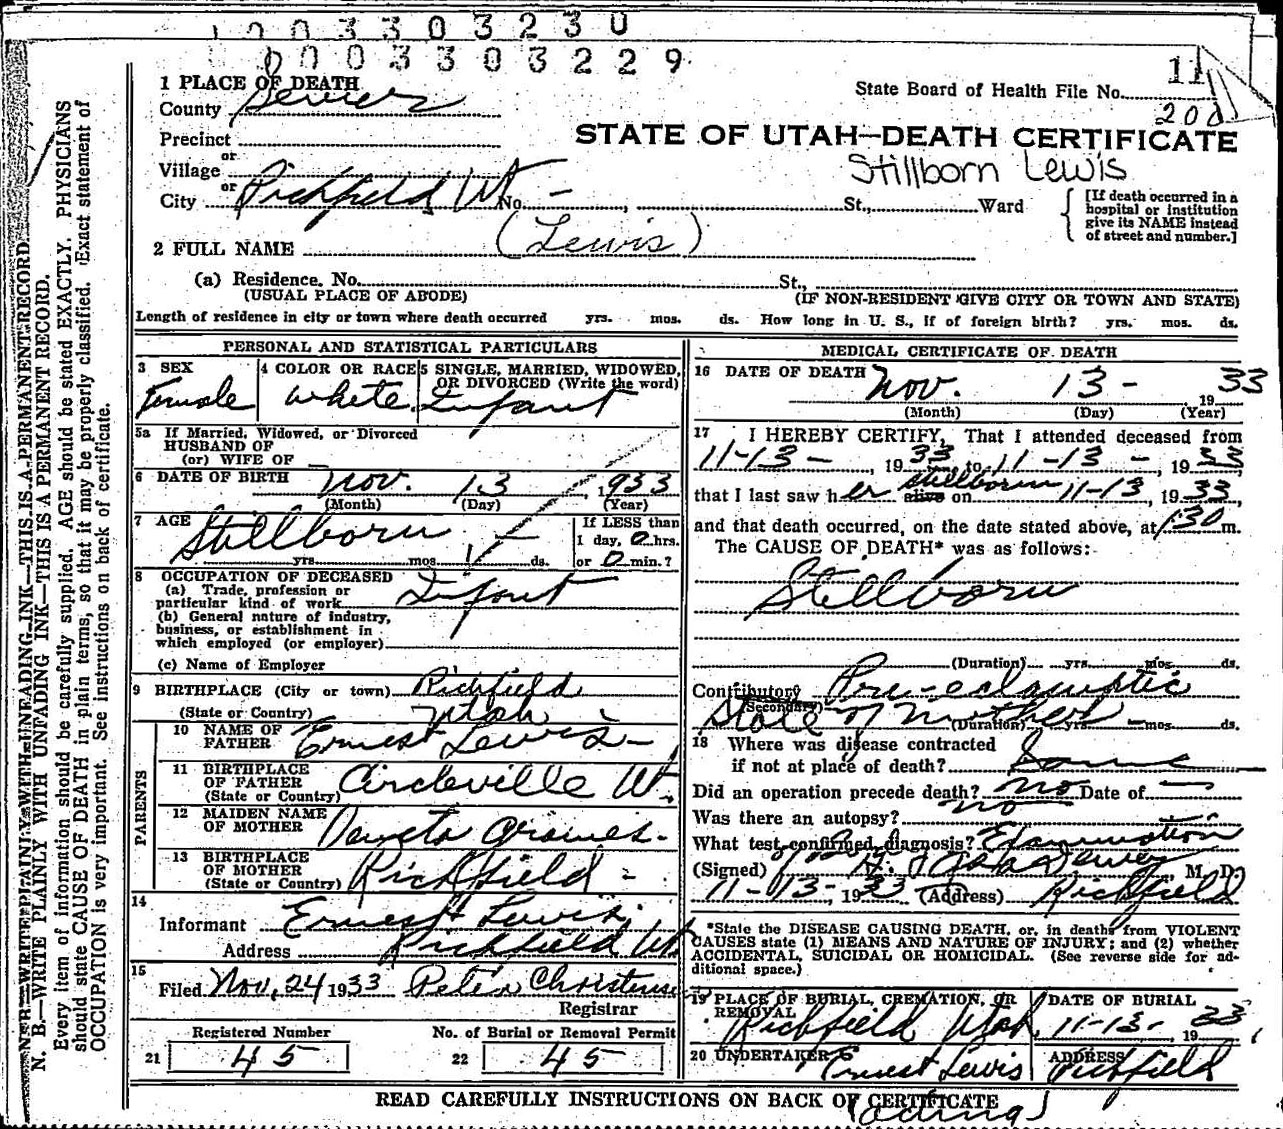 0 0 3 3 0 3 2 3 0
0 0 0 3 3 0 3 2 2 9
1 PLACE OF DEATH
County Sevier
State Board of Health File No. 11
200
Precinct
or
STATE OF UTAH—DEATH CERTIFICATE
Village
or
Stillborn Lewis
City Richfield Ut No. — , St., Ward
[If death occurred in a hospital or institution give its NAME instead of street and number.]
2 FULL NAME (Lewis)
(a) Residence. No. St.,
(USUAL PLACE OF ABODE) (IF NON-RESIDENT GIVE CITY OR TOWN AND STATE)
Length of residence in city or town where death occurred yrs. mos. ds. How long in U. S., if of foreign birth? yrs. mos. ds.
PERSONAL AND STATISTICAL PARTICULARS
3 SEX Female
4 COLOR OR RACE white
5 SINGLE, MARRIED, WIDOWED, OR DIVORCED (Write the word) Infant
5a If Married, Widowed, or Divorced
HUSBAND OF
(or) WIFE OF —
6 DATE OF BIRTH Nov. 13 1933
(Month) (Day) (Year)
7 AGE Stillborn —
yrs. mos. ds.
If LESS than
1 day, 0 hrs.
or 0 min.?
8 OCCUPATION OF DECEASED
(a) Trade, profession or
particular kind of work Infant
(b) General nature of industry,
business, or establishment in
which employed (or employer)
(c) Name of Employer
9 BIRTHPLACE (City or town) Richfield
(State or Country) Utah -
PARENTS
10 NAME OF FATHER Ernest Lewis -
11 BIRTHPLACE OF FATHER (State or Country) Circleville Ut.
12 MAIDEN NAME OF MOTHER
13 BIRTHPLACE OF MOTHER (State or Country) Richfield -
14
Informant Ernest Lewis
Address Richfield Ut
15
Filed Nov, 24 1933 Peter Christensen
Registrar
Registered Number No. of Burial or Removal Permit
21 45 22 45
MEDICAL CERTIFICATE OF DEATH
16 DATE OF DEATH Nov. 13 - 1933
(Month) (Day) (Year)
17 I HEREBY CERTIFY, That I attended deceased from
11-13 - , 1933 to 11-13 - , 1933
that I last saw her alive stillborn on 11-13, 1933,
and that death occurred, on the date stated above, at 1:30 m.
The CAUSE OF DEATH* was as follows:
Stillborn
(Duration) yrs. mos. ds.
Contributory Pre-eclamptic
(Secondary)
State of mother
(Duration) yrs. — mos. ds.
18 Where was disease contracted
if not at place of death? Same
Did an operation precede death? no Date of —
Was there an autopsy? no
What test confirmed diagnosis? Examination
(Signed) , M. D.
11-13-, 1933 (Address) Richfield
*State the DISEASE CAUSING DEATH, or, in deaths from VIOLENT
CAUSES state (1) MEANS AND NATURE OF INJURY; and (2) whether
ACCIDENTAL, SUICIDAL OR HOMICIDAL. (See reverse side for ad-
ditional space.)
19 PLACE OF BURIAL, CREMATION, OR REMOVAL Richfield Utah
DATE OF BURIAL 11-13-, 1933
20 UNDERTAKER Ernest Lewis
ADDRESS Richfield
READ CAREFULLY INSTRUCTIONS ON BACK OF CERTIFICATE
(acting)
N. B.—WRITE PLAINLY WITH UNFADING INK—THIS IS A PERMANENT RECORD.
N. B.—WRITE PLAINLY WITH UNFADING INK—THIS IS A PERMANENT RECORD.
Every item of information should be carefully supplied. AGE should be stated EXACTLY. PHYSICIANS
should state CAUSE OF DEATH in plain terms, so that it may be properly classified. Exact statement of
OCCUPATION is very important. See instructions on back of certificate.